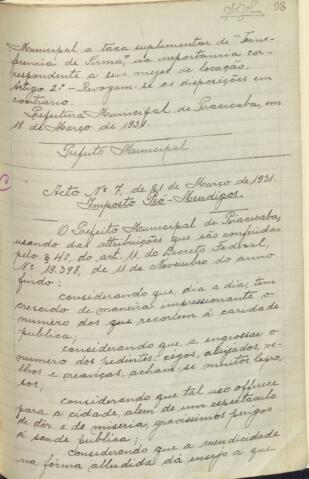 98
Municipal a taxa suplementar de "Trans-
ferencia de Firma", na importancia cor-
respondente a seis mezes de locação.
Artigo 2º - Revogam-se as disposições em
contrario.
Prefeitura Municipal de Piracicaba, em
18 de Março de 1931.
Prefeito Municipal
Acto Nº 7, de 21 de Março de 1931.
Imposto Pró-Mendigos.
O Prefeito Municipal de Piracicaba,
usando das attribuições que são conferidas
pelo § 4º, do art. 11, do Decreto Federal,
Nº 19.398, de 11 de Novembro do anno
findo:
considerando que, dia a dia, tem
crescido de maneira impressionante o
numero dos que recorrem á caridade
publica;
considerando que a engrossar o
numero dos pedintes: cegos, aleijados, ve-
lhos e creanças, acham-se muitos lepro-
sos;
considerando que tal uso offerece
para a cidade, alem de um espectaculo
de dôr e de miseria, gravissimos perigos
á saude publica;
considerando que a mendicidade
na fórma alludida dá ensejo a que